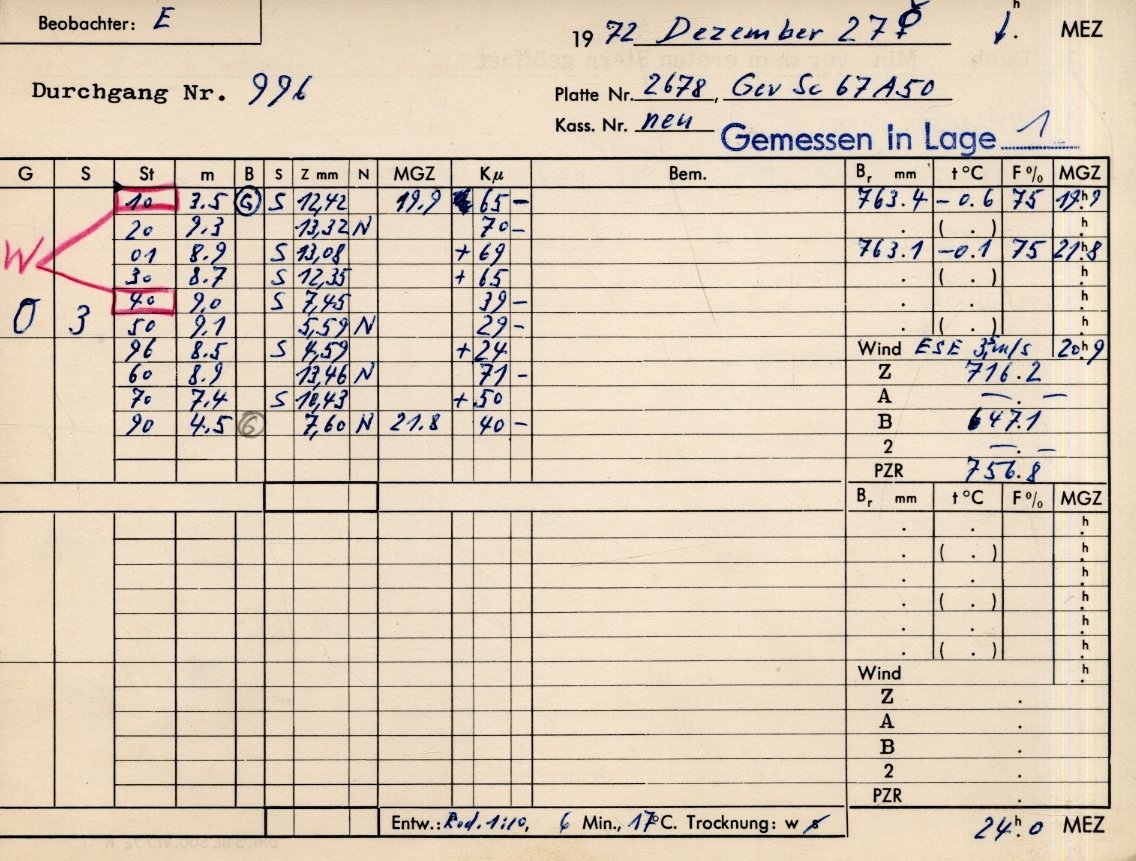 Beobachter: E
1972 Dezember 27 ☿ h. MEZ
Durchgang Nr. 996
Platte Nr. 2678, Gev Sc 67A50
Kass. Nr. neu
Gemessen in Lage 1
G S St m B S Z mm N MGZ Kμ Bem. Br mm t °C F % MGZ
10 3.5 G S 12,42 19.9 65 – 763.4 – 0.6 75 19h.9
20 9.3 13,32 N 70 – . ( . ) h.
W 01 8.9 S 13,08 + 69 763.1 – 0.1 75 21h.8
30 8.7 S 12,35 + 65 . ( . ) h.
40 9.0 S 7,45 39 – . . h.
0 3 50 9.1 5,59 N 29 – . ( . ) h.
96 8.5 S 4,59 + 24 Wind ESE m/s 20h.9
60 8.9 13,46 N 71 – Z 716.2
70 7.4 S 10,43 + 50 A – . –
90 4.5 G 7,60 N 21.8 40 – B 647.1
2 – . –
PZR 756.8
Br mm t °C F % MGZ
. . h.
. ( . ) h.
. . h.
. ( . ) h.
. . h.
. ( . ) h.
Wind h.
Z .
A .
B .
2 .
PZR .
Entw.: Rod. 1:10, 6 Min., 17°C. Trocknung: w s
24h.0 MEZ